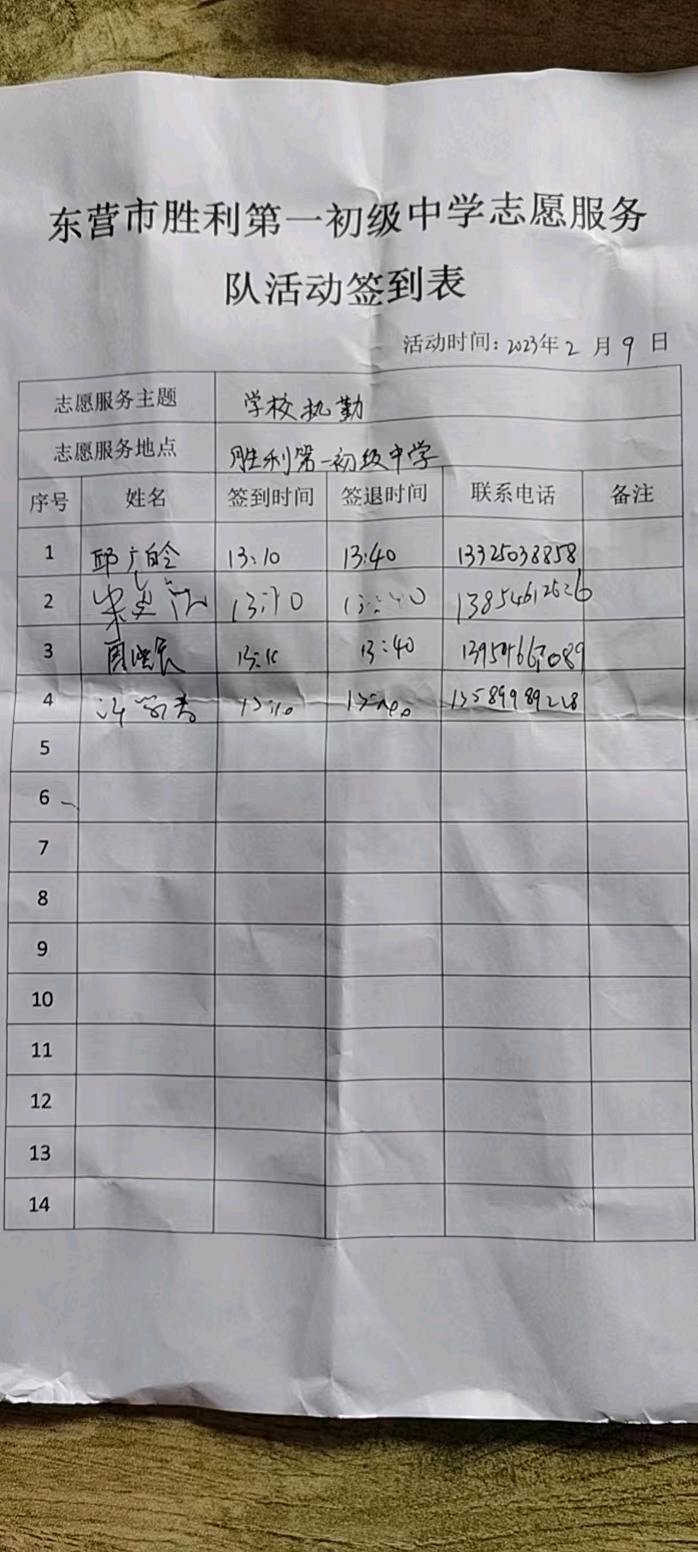 东营市胜利第一初级中学志愿服务
队活动签到表
活动时间：2023年2月9日
志愿服务主题 学校执勤
志愿服务地点 胜利第一初级中学
序号 姓名 签到时间 签退时间 联系电话 备注
1 邱广 13:10 13:40 13325038858
2 13:10 13:40
3 13:10 13:40
4 13:10 13:40 13589989228
5
6
7
8
9
10
11
12
13
14